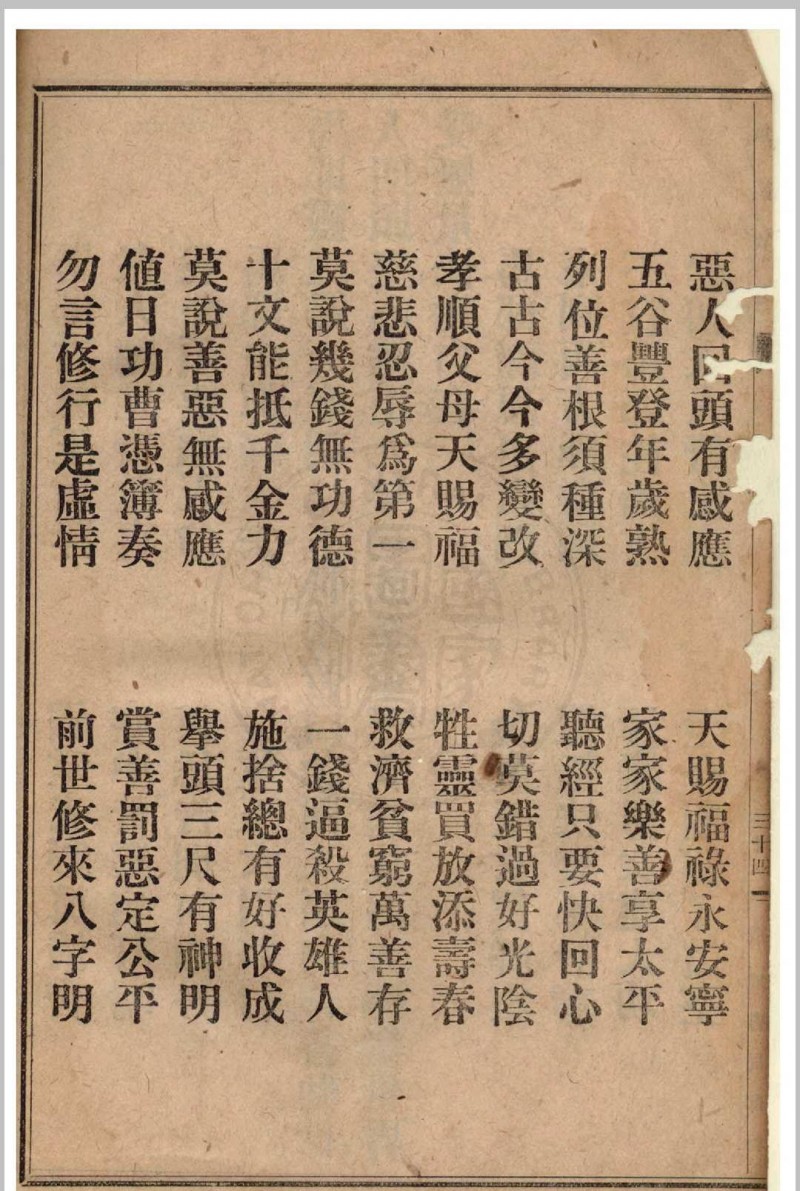 惡人回頭有感應　天賜福祿永安寧
五谷豐登年歲熟　家家樂善享太平
列位善根須種深　聽經只要快回心
古古今今多變改　切莫錯過好光陰
孝順父母天賜福　牲靈買放添壽春
慈悲忍辱爲第一　救濟貧窮萬善存
莫說幾錢無功德　一錢逼殺英雄人
十文能抵千金力　施捨總有好收成
莫說善惡無感應　舉頭三尺有神明
値日功曹憑簿奏　賞善罰惡定公平
勿言修行是虛情　前世修來八字明
三十四